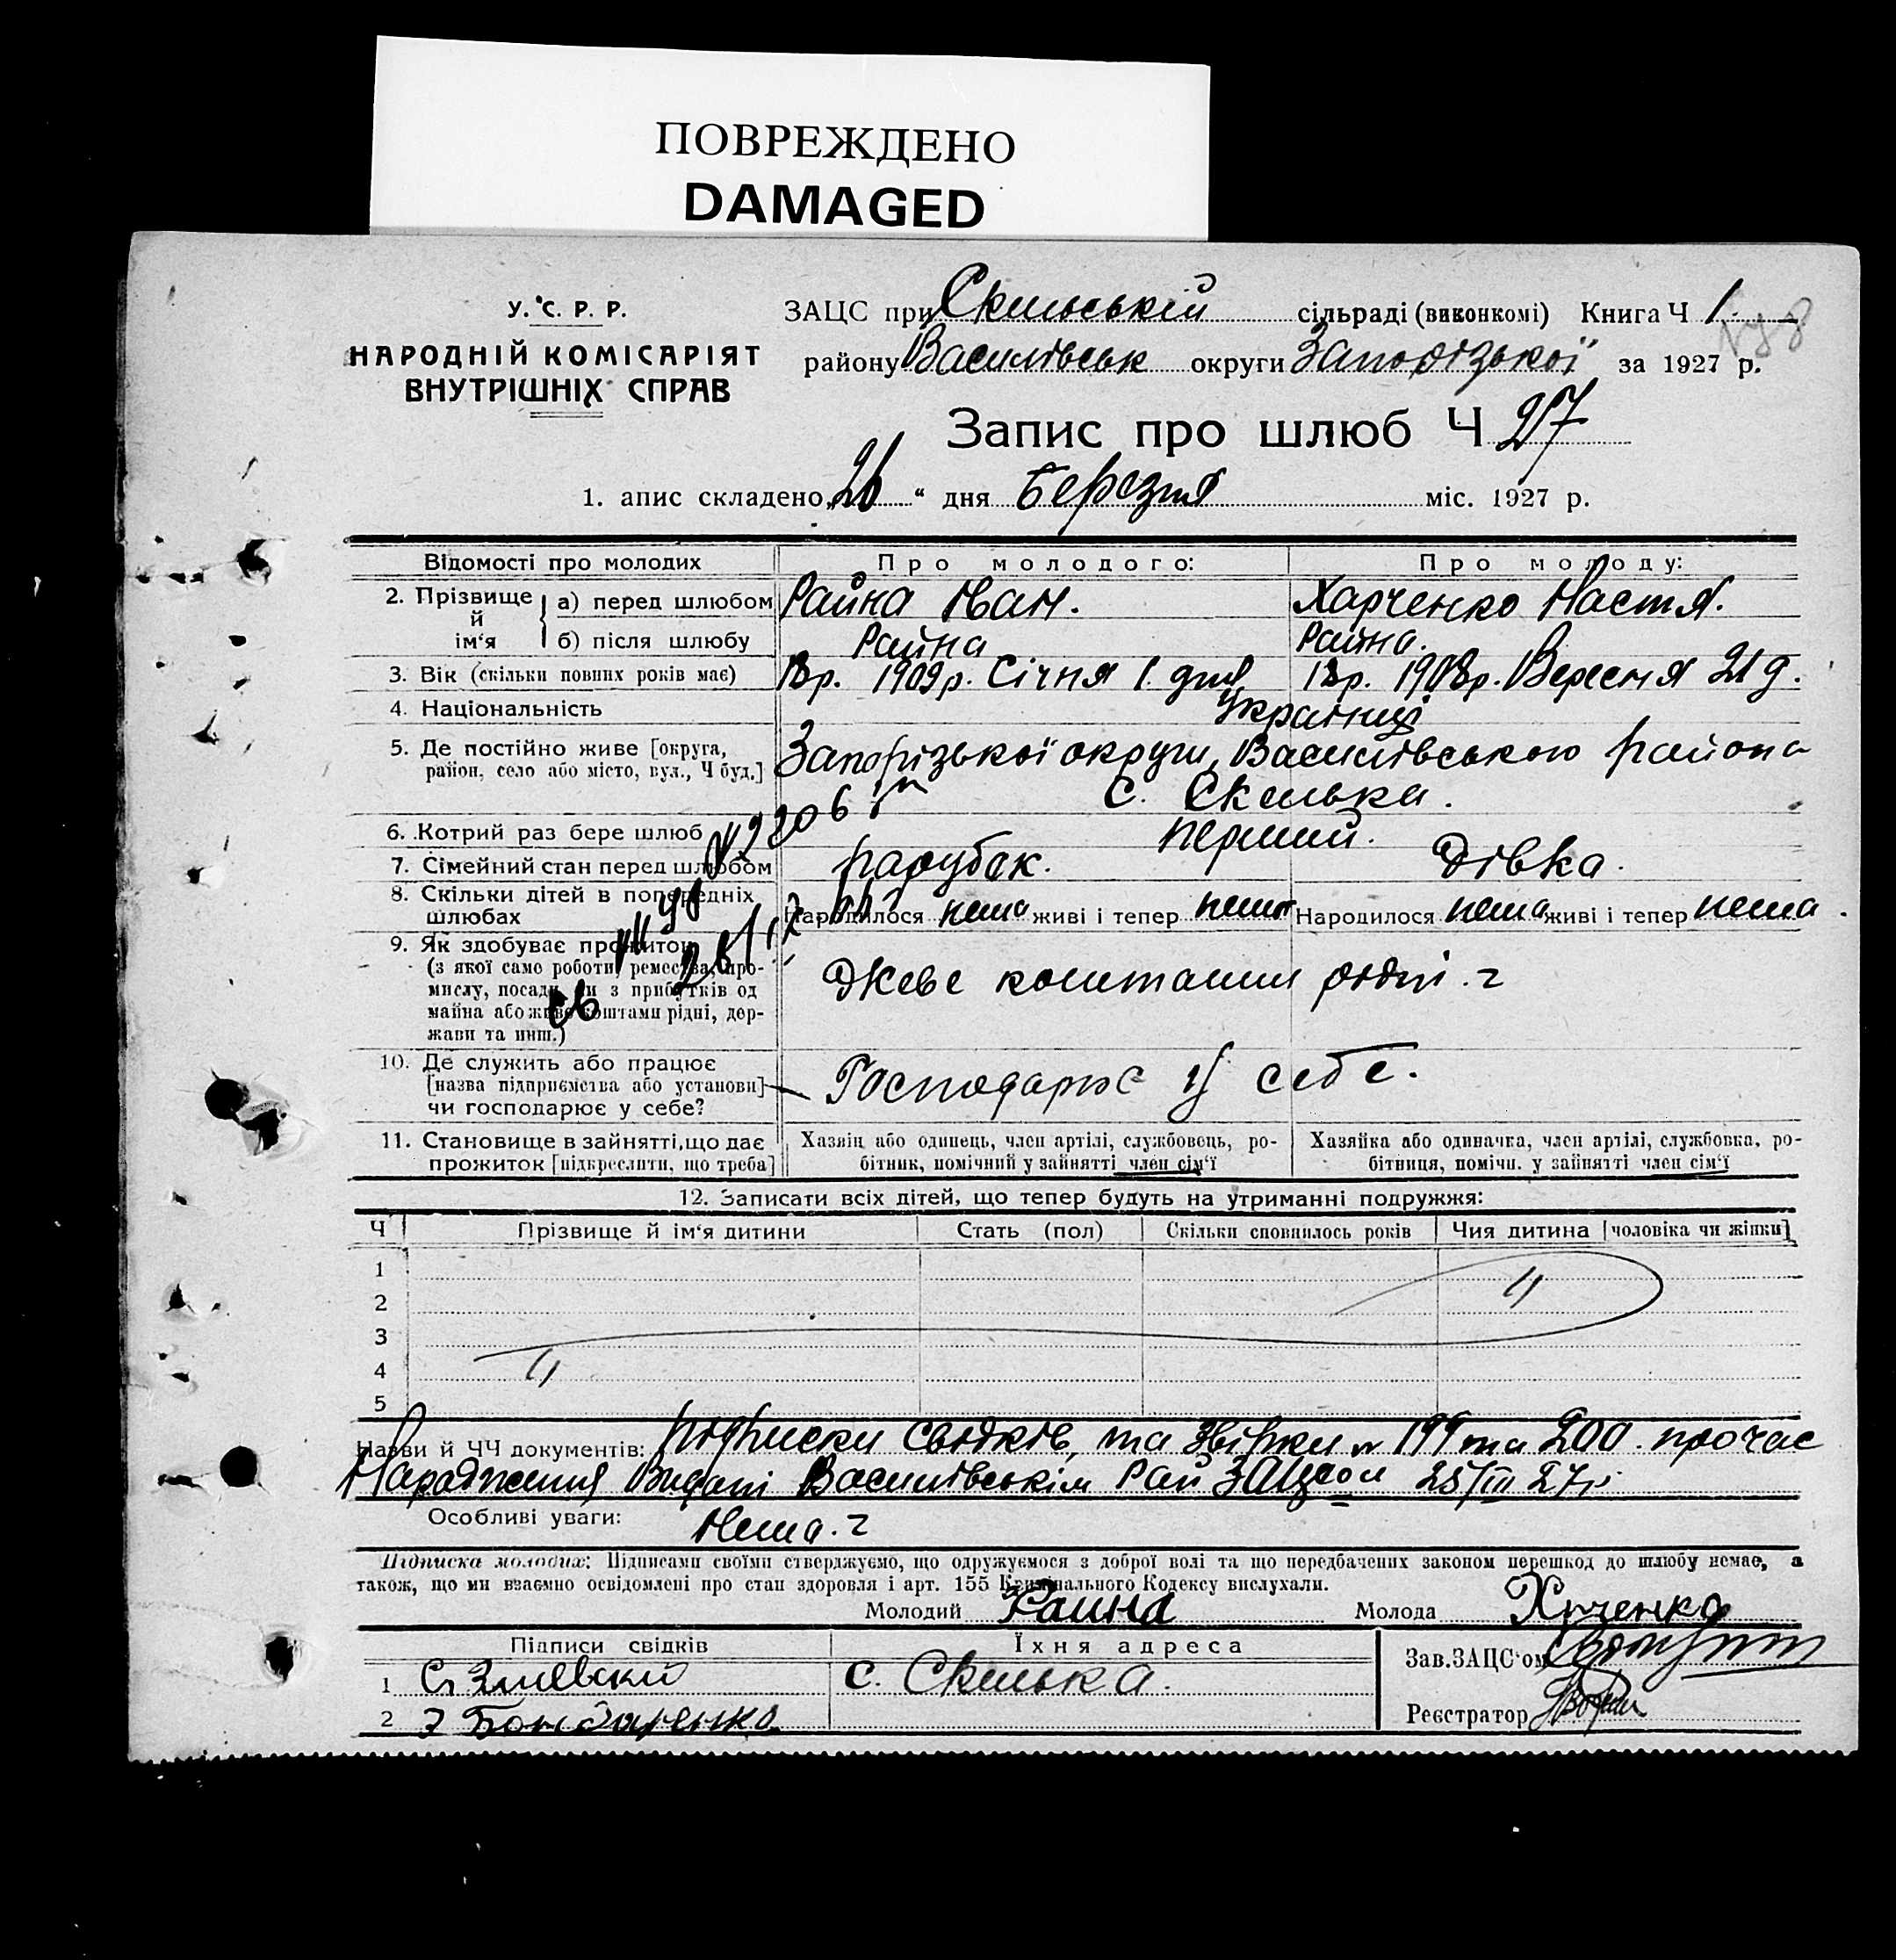 ПОВРЕЖДЕНО
DAMAGED
У. С. Р. Р.
НАРОДНІЙ КОМІСАРІЯТ
ВНУТРІШНІХ СПРАВ
ЗАЦС при Скельській сільраді (виконкомі) Книга Ч 1
району Василівськ округи Запорізької за 1927 р.
Запис про шлюб Ч 27
1. апис складено „26“ дня Березня міс. 1927 р.
Відомості про молодих
Про молодого:
Про молоду:
2. Прізвище й ім‘я
а) перед шлюбом
Райна Иван.
Харченко Настя.
б) після шлюбу
Райна
Райна.
3. Вік (скільки повних років має)
18р. 1909р. Січня 1 дня
18р. 1908р. Вересня 21 д.
4. Національність
Українці
5. Де постійно живе [округа,
район, село або місто, вул., Ч буд.]
Запорізької округи, Василівського района
с. Скелька.
6. Котрий раз бере шлюб
перший.
7. Сімейний стан перед шлюбом
парубок.
Дівка.
8. Скільки дітей в попередніх
шлюбах
Народилося нема живі і тепер нема
Народилося нема живі і тепер нема.
9. Як здобуває прожиток
(з якої само роботи, ремества, про-
мислу, посади, чи з прибутків од
майна або живе коштами рідні, дер-
жави та инш.)
Живе коштами рідні.
10. Де служить або працює
[назва підприємства або установи]
чи господарює у себе?
Господарює у себе.
11. Становище в зайнятті, що дає
прожиток [підкреслити, що треба]
Хазяїн або одинець, член артілі, службовець, ро-
бітник, помічний у зайнятті член сім‘ї
Хазяйка або одиначка, член артілі, службовка, ро-
бітниця, помічн. у зайнятті член сім‘ї
12. Записати всіх дітей, що тепер будуть на утриманні подружжя:
Ч
Прізвище й ім‘я дитини
Стать (пол)
Скільки сповнилось років
Чия дитина [чоловіка чи жінки]
1
2
3
4
5
Назви й ЧЧ документів: підписки свідків, та звірки № 199 та 200. про час
Народження Видані Василівським Рай ЗАЦСом 25/III 27р.
Особливі уваги: Нема.
Підписка молодих: Підписами своїми стверджуємо, що одружуємося з доброї волі та що передбачених законом перешкод до шлюбу немає, а
також, що ми взаємно освідомлені про стан здоровля і арт. 155 Кримінального Кодексу вислухали.
Молодий Раина Молода Хрченко
Підписи свідків
Їхня адреса
1
с. Скелька.
2 Бондаренко
Зав. ЗАЦС‘ом
Реєстратор